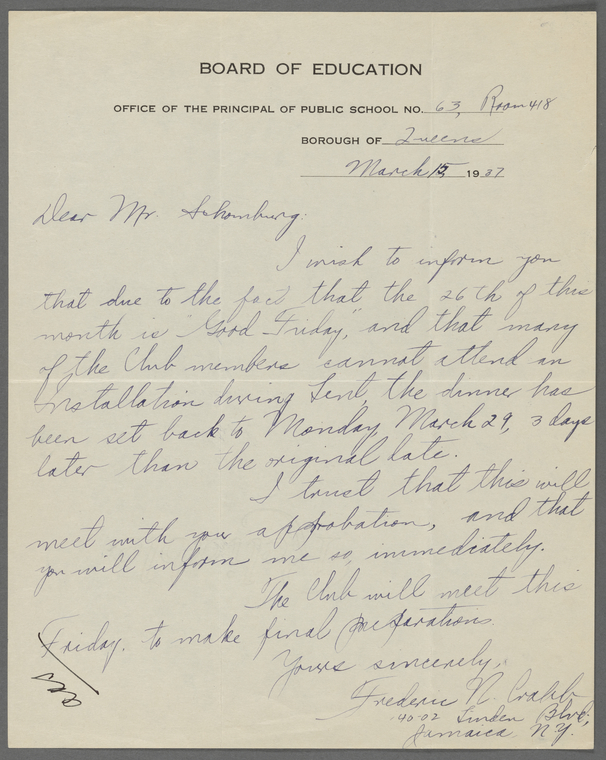 BOARD OF EDUCATION
OFFICE OF THE PRINCIPAL OF PUBLIC SCHOOL NO. 63, Room 418
BOROUGH OF Queens
March 15, 1937
Dear Mr. Schomburg:
I wish to inform you
that due to the fact that the 26th of this
month is "Good Friday," and that many
of the Club members cannot attend an
Installation during Lent, the dinner has
been set back to Monday, March 29, 3 days
later than the original date.
I trust that this will
meet with your approbation, and that
you will inform me so, immediately.
The Club will meet this
Friday. to make final preparations.
Yours sincerely,
Frederic N. Crabb
Linden Blvd.,
Jamaica N.Y.